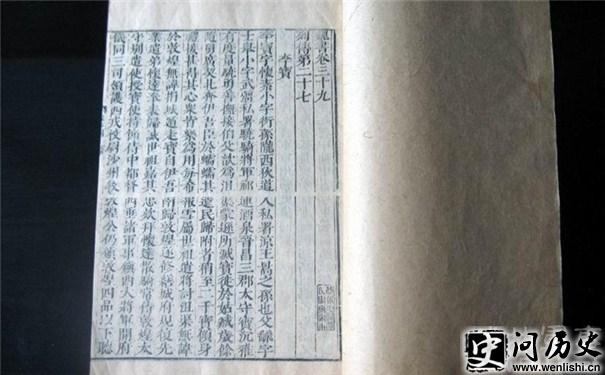 魏書卷三十九
列傳第二十七
李寶
李寶字懷素小字衍孫隴西狄道人私署涼王暠之孫也父翻字
士舉小字武彊私署驍騎將軍祁連酒泉晉昌三郡太守寶沉雅
有度量驍勇善撫接伯父歆為沮渠蒙遜所滅寶徙於姑臧歲餘
隨舅唐契北奔伊吾臣於蠕蠕其遺民歸附者稍至二千寶傾身
禮接甚得其心眾皆樂為用每希報雪屬世祖遣將討沮渠無諱
於敦煌無諱捐城遁走寶自伊吾南歸敦煌遂修繕城府規復先
業遣弟懷達奉表歸誠世祖嘉其忠款拜懷達散騎常侍敦煌太
守別遣使授寶使持節侍中都督西垂諸軍事鎮西大將軍開府
儀同三司領護西戎校尉沙州牧敦煌公仍鎮敦煌四品以下聽
史问历史
www.wenlishi.cn